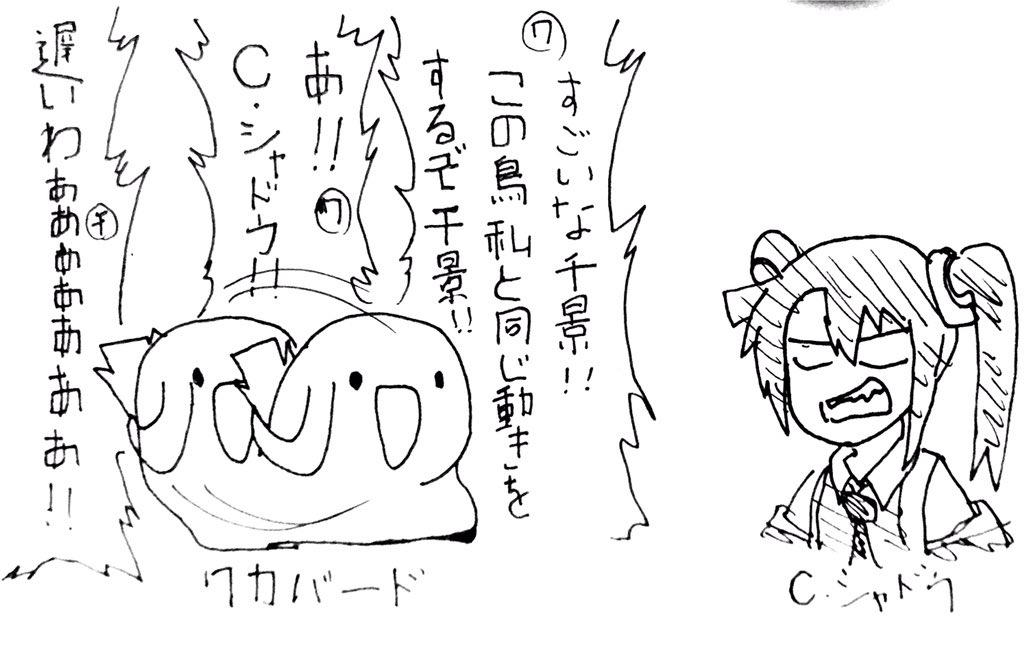 ワ
すごいな千景!!
この鳥私と同じ動きを
するぞ千景!!
あ!!
ワ
C・シャドウ!!
遅いわぁあぁあああああ!!
千
ワカバード
C・シャドウ